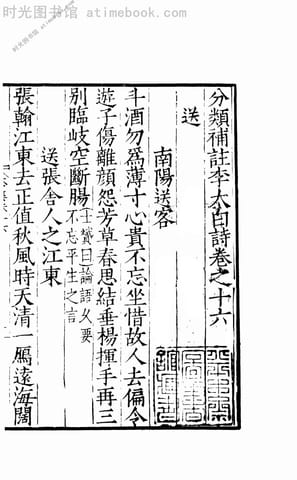 时光图书馆 atimebook.com
时光图书馆 atimebook.com
分類補註李太白詩卷之十六
送
南陽送客
斗酒勿為薄寸心貴不忘坐惜故人去偏令
遊子傷離顏怨芳草春思結垂楊揮手再三
別臨岐空斷腸士贇曰論語久要不忘平生之言
送張舍人之江東
張翰江東去正值秋風時天清一鴈遠海闊